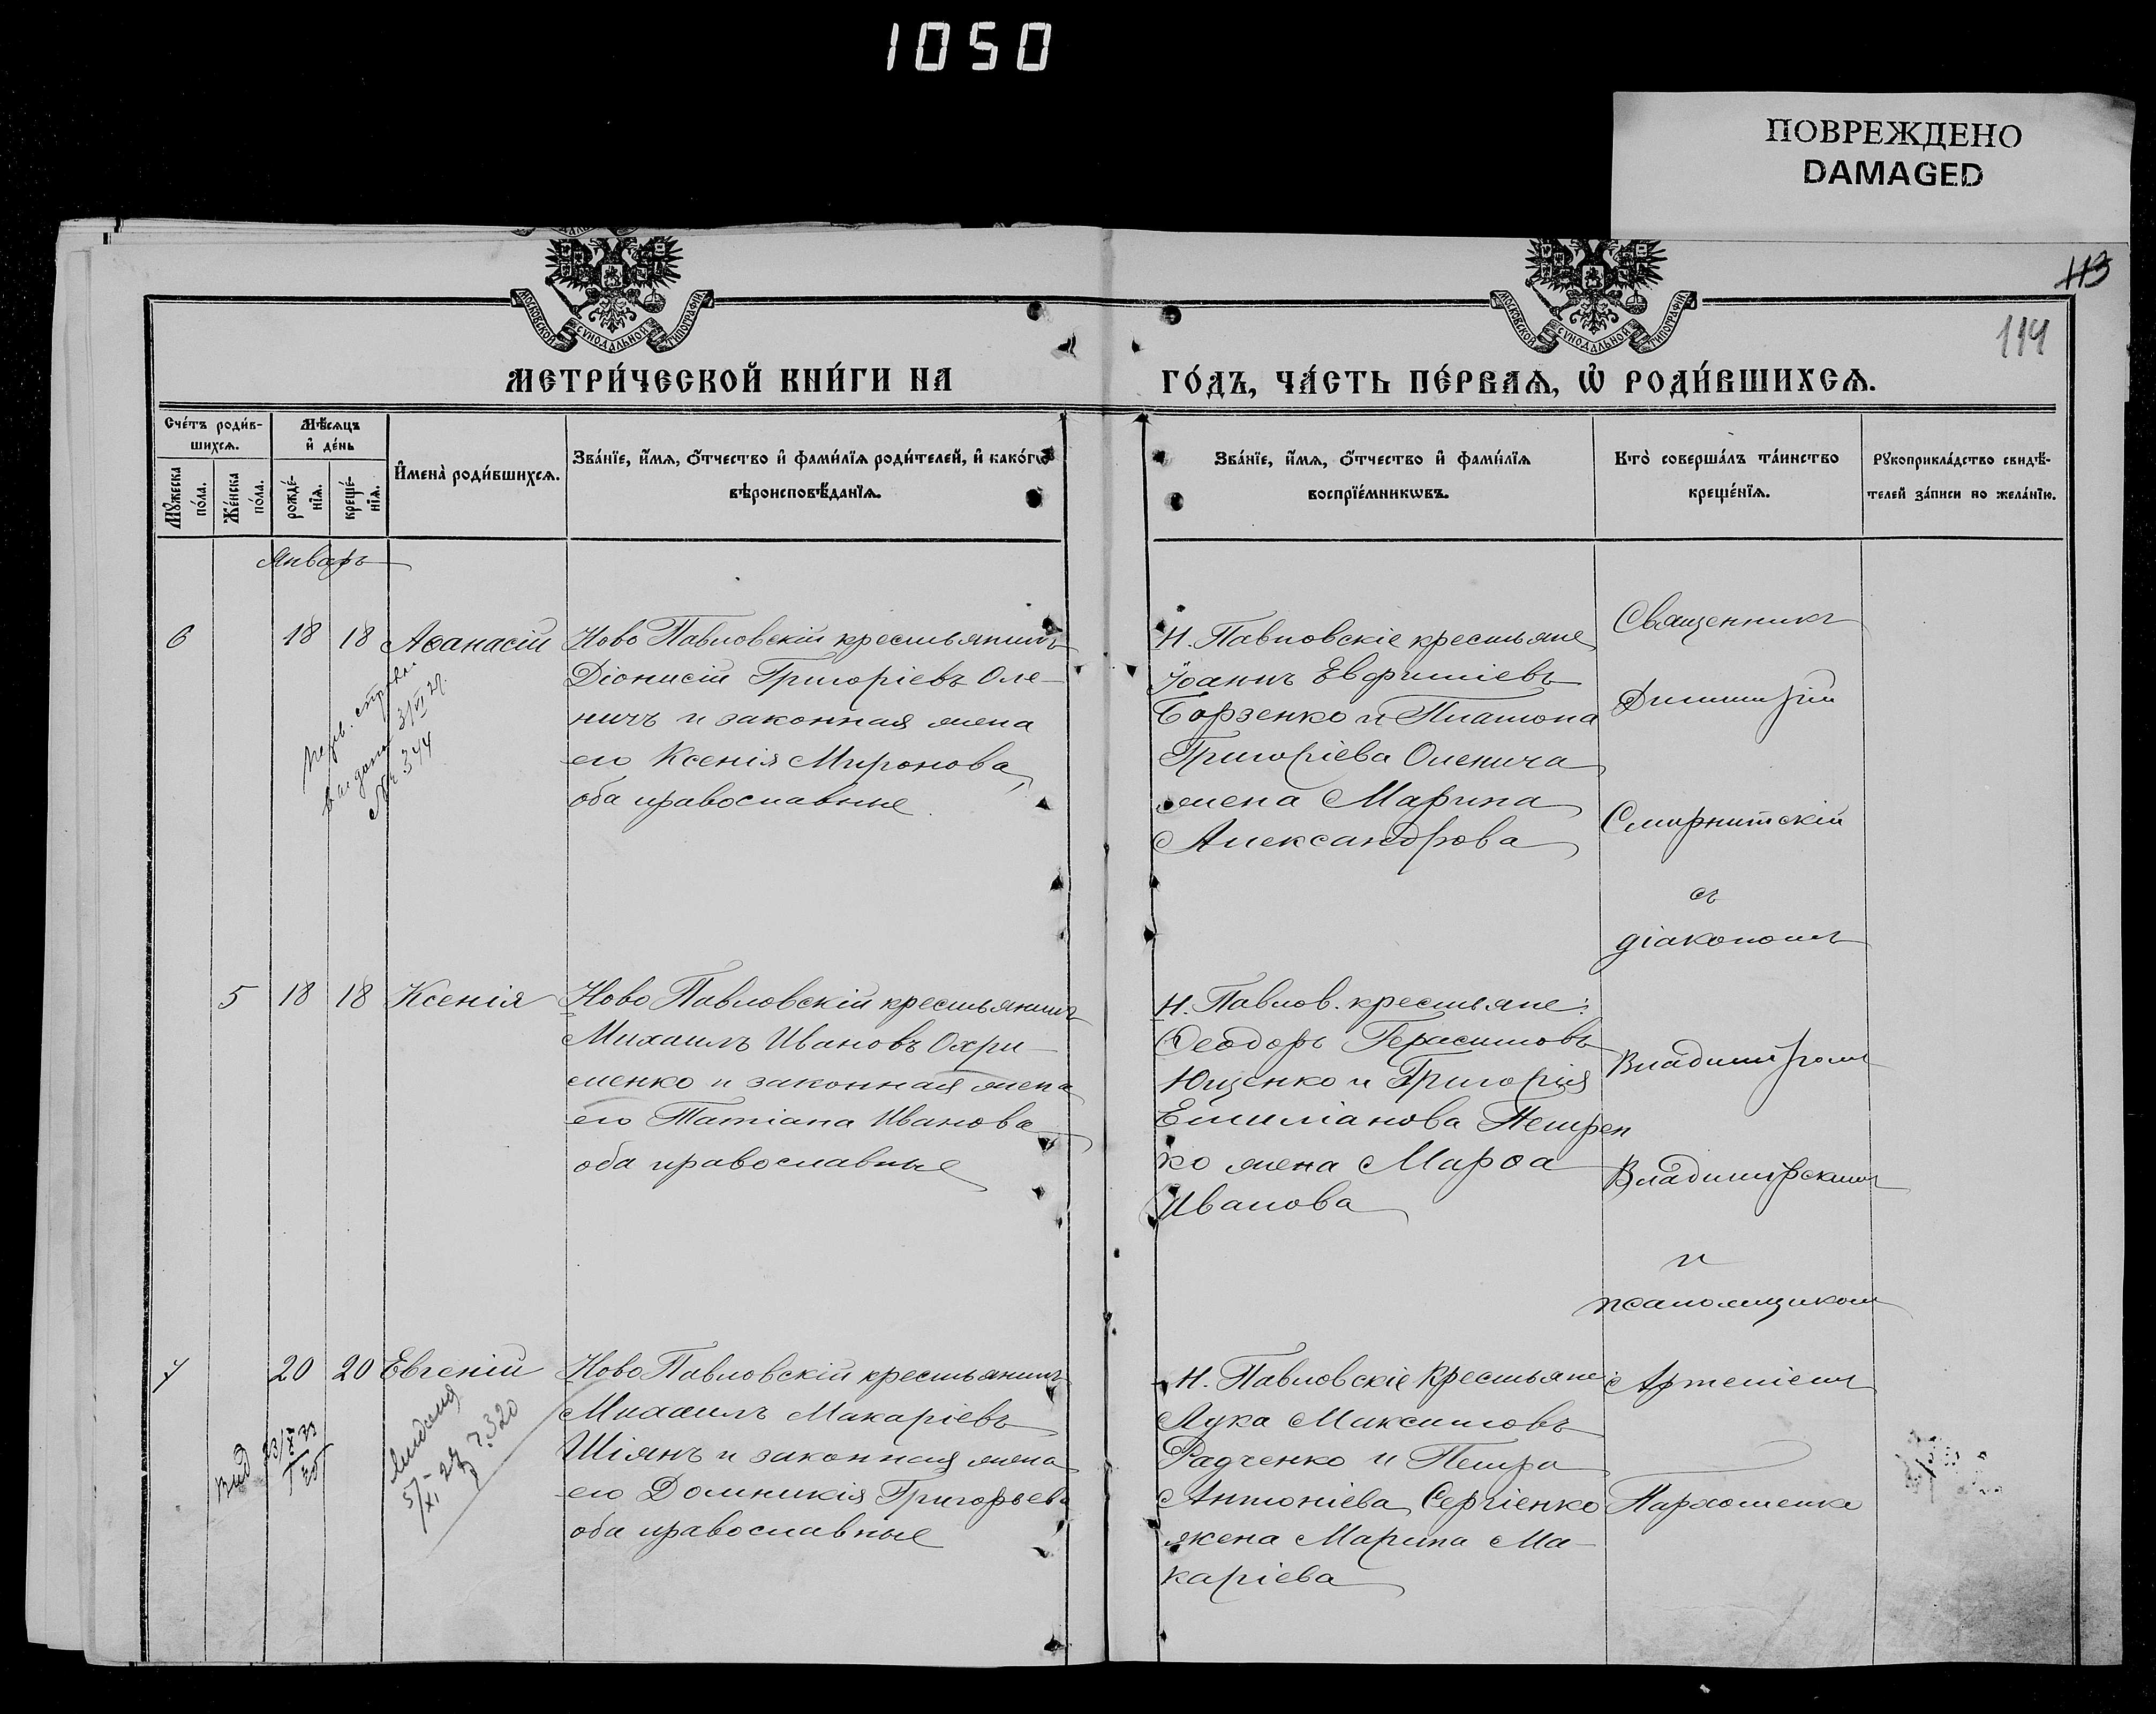 1050
ПОВРЕЖДЕНО
DAMAGED
113
114
МОСКОВСКОЙ СУНОДАЛЬНОЙ ТИПОГРАФІИ
МОСКОВСКОЙ СУНОДАЛЬНОЙ ТИПОГРАФІИ
МЕТРИ́ЧЕСКОЙ КНИ́ГИ НА
ГО́ДЪ, ЧА́СТЬ ПЕ́РВАѦ, Ѽ РОДИ́ВШИХСѦ.
Сче́тъ роди́в-
шихсѧ.
Мꙋжеска по́ла.
Же́нска по́ла.
Мѣ́сѧцъ
и҆ де́нь
рожде́-
нїѧ.
креще́-
нїѧ.
И҆мена̀ роди́вшихсѧ.
Зва́нїе, и҆́мѧ, ѻ҆́тчество и҆ фами́лїѧ роди́телей, и҆ како́гѡ
вѣроисповѣ́данїѧ.
Зва́нїе, и҆́мѧ, ѻ҆́тчество и҆ фами́лїѧ
воспрїе́мникѡвъ.
Кто̀ соверша́лъ та́инство
креще́нїѧ.
Рꙋкоприкла́дство свидѣ́-
телей за́писи по жела́нїю.
Январь
6
18 18 Аѳанасій
Ново Павловскій крестьянинъ
Діонисій Григоріевъ Оле-
ничъ и законная жена
его Ксенія Миронова,
оба православные.
выдана 3/VI 27.
№ 344
Н. Павловскіе крестьяне
Іоаннъ Евфиміевъ
Борзенко и Платона
Григоріева Оленича
жена Марина
Александрова
Священникъ
Димитрій
Смирнитскій
съ
діакономъ
5 18 18 Ксенія
Ново Павловскій крестьянинъ
Михаилъ Ивановъ Охри-
менко и законная жена
его Татіана Иванова
оба православные
Н. Павлов. крестьяне:
Ѳеодоръ Герасимовъ
Ющенко и Григорія
Емиліанова Петрен
ко жена Марѳа
Иванова
Владиміромъ
Владимірскимъ
и
псаломщикомъ
7
20 20 Евгеній
Ново Павловскій крестьянинъ
Михаилъ Макаріевъ
Шіянъ и законная жена
его Домникія Григорьева
оба православные
Н. Павловскіе крестьяне:
Лука Максимовъ
Радченко и Петра
Антоніева Сергіенко
жена Марина Ма-
каріева
Артеміемъ
Пархоменко